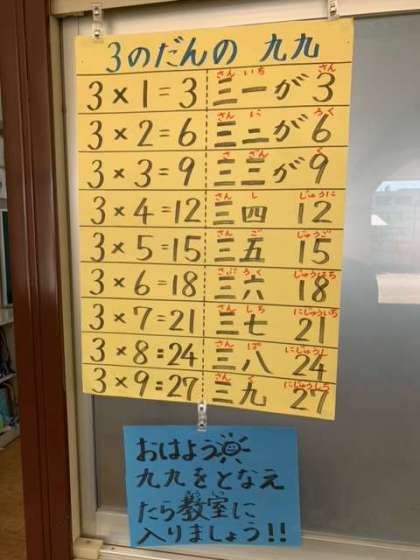 3のだんの 九九
さん いち さん
3×1=3 三一が 3
さん に ろく
3×2=6 三二が 6
さ ざん く
3×3=9 三三が 9
さん し じゅうに
3×4=12 三四 12
さん ご じゅうご
3×5=15 三五 15
さぶ ろく じゅうはち
3×6=18 三六 18
さん しち にじゅういち
3×7=21 三七 21
さん ぱ にじゅうし
3×8=24 三八 24
さん く にじゅうしち
3×9=27 三九 27
おはよう
九九をとなえ
たら教室に
入りましょう!!